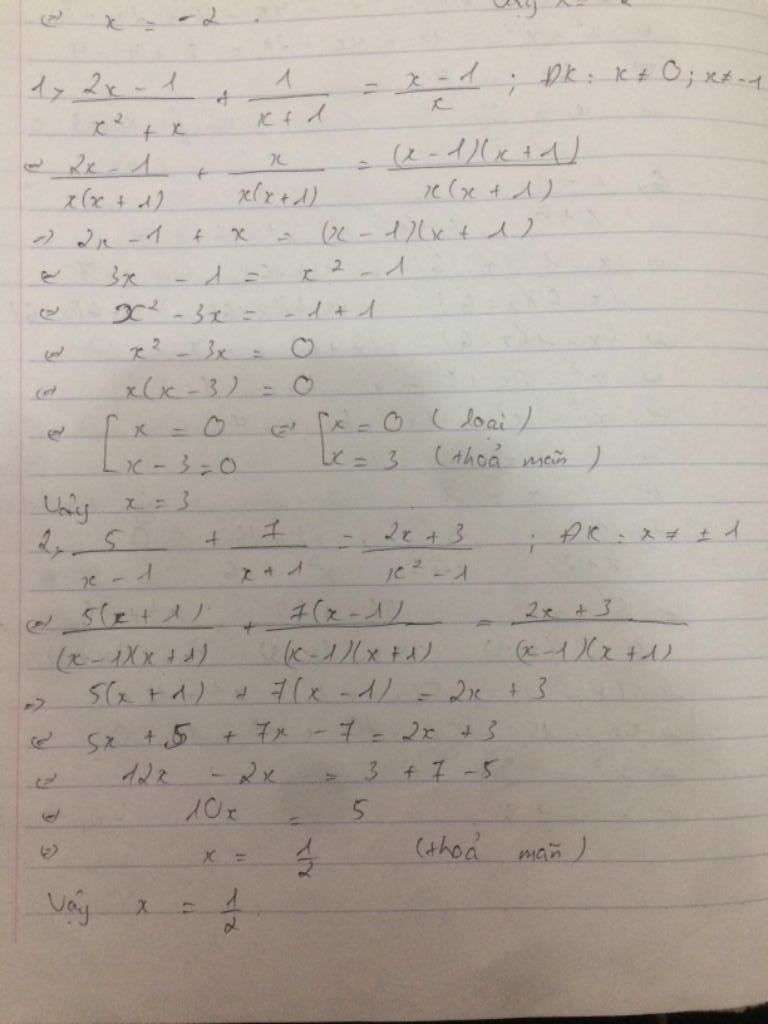 ⇔ x = -2.
1, (2x - 1)/(x² + x) + 1/(x + 1) = (x - 1)/x ; ĐK: x ≠ 0; x ≠ -1
⇔ (2x - 1)/(x(x + 1)) + x/(x(x+1)) = ((x - 1)(x + 1))/(x(x + 1))
⇒ 2x - 1 + x = (x - 1)(x + 1)
⇔ 3x - 1 = x² - 1
⇔ x² - 3x = -1 + 1
⇔ x² - 3x = 0
⇔ x(x - 3) = 0
⇔ [ x = 0 ⇔ [ x = 0 (loại)
x - 3 = 0 x = 3 (thoả mãn)
Vậy x = 3
2, 5/(x - 1) + 7/(x + 1) = (2x + 3)/(x² - 1) ; ĐK: x ≠ ± 1
⇔ (5(x + 1))/((x - 1)(x + 1)) + (7(x - 1))/((x - 1)(x + 1)) = (2x + 3)/((x - 1)(x + 1))
⇒ 5(x + 1) + 7(x - 1) = 2x + 3
⇔ 5x + 5 + 7x - 7 = 2x + 3
⇔ 12x - 2x = 3 + 7 - 5
⇔ 10x = 5
⇔ x = 1/2 (thoả mãn)
Vậy x = 1/2